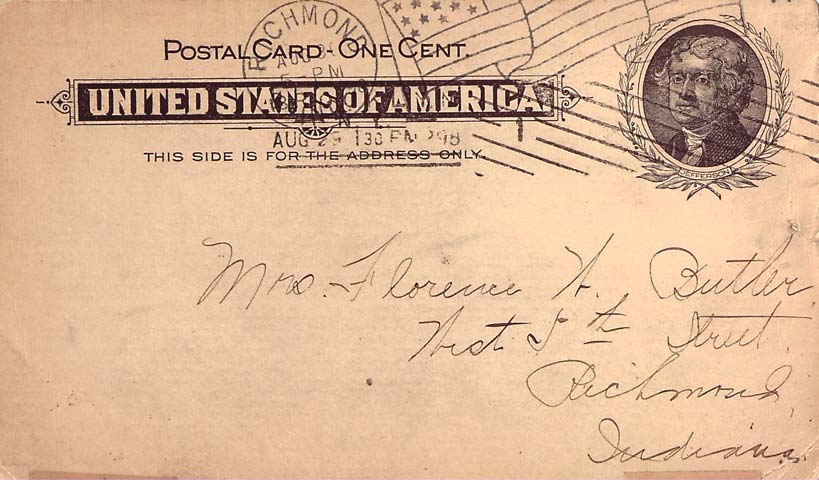 RICHMOND
POSTAL CARD - ONE CENT.
5-PM
UNITED STATES OF AMERICA
AUG 29 1 30 PM '98
THIS SIDE IS FOR THE ADDRESS ONLY.
JEFFERSON
Mrs. Florence N. Butler,
West 5th Street.
Richmond,
Indiana.